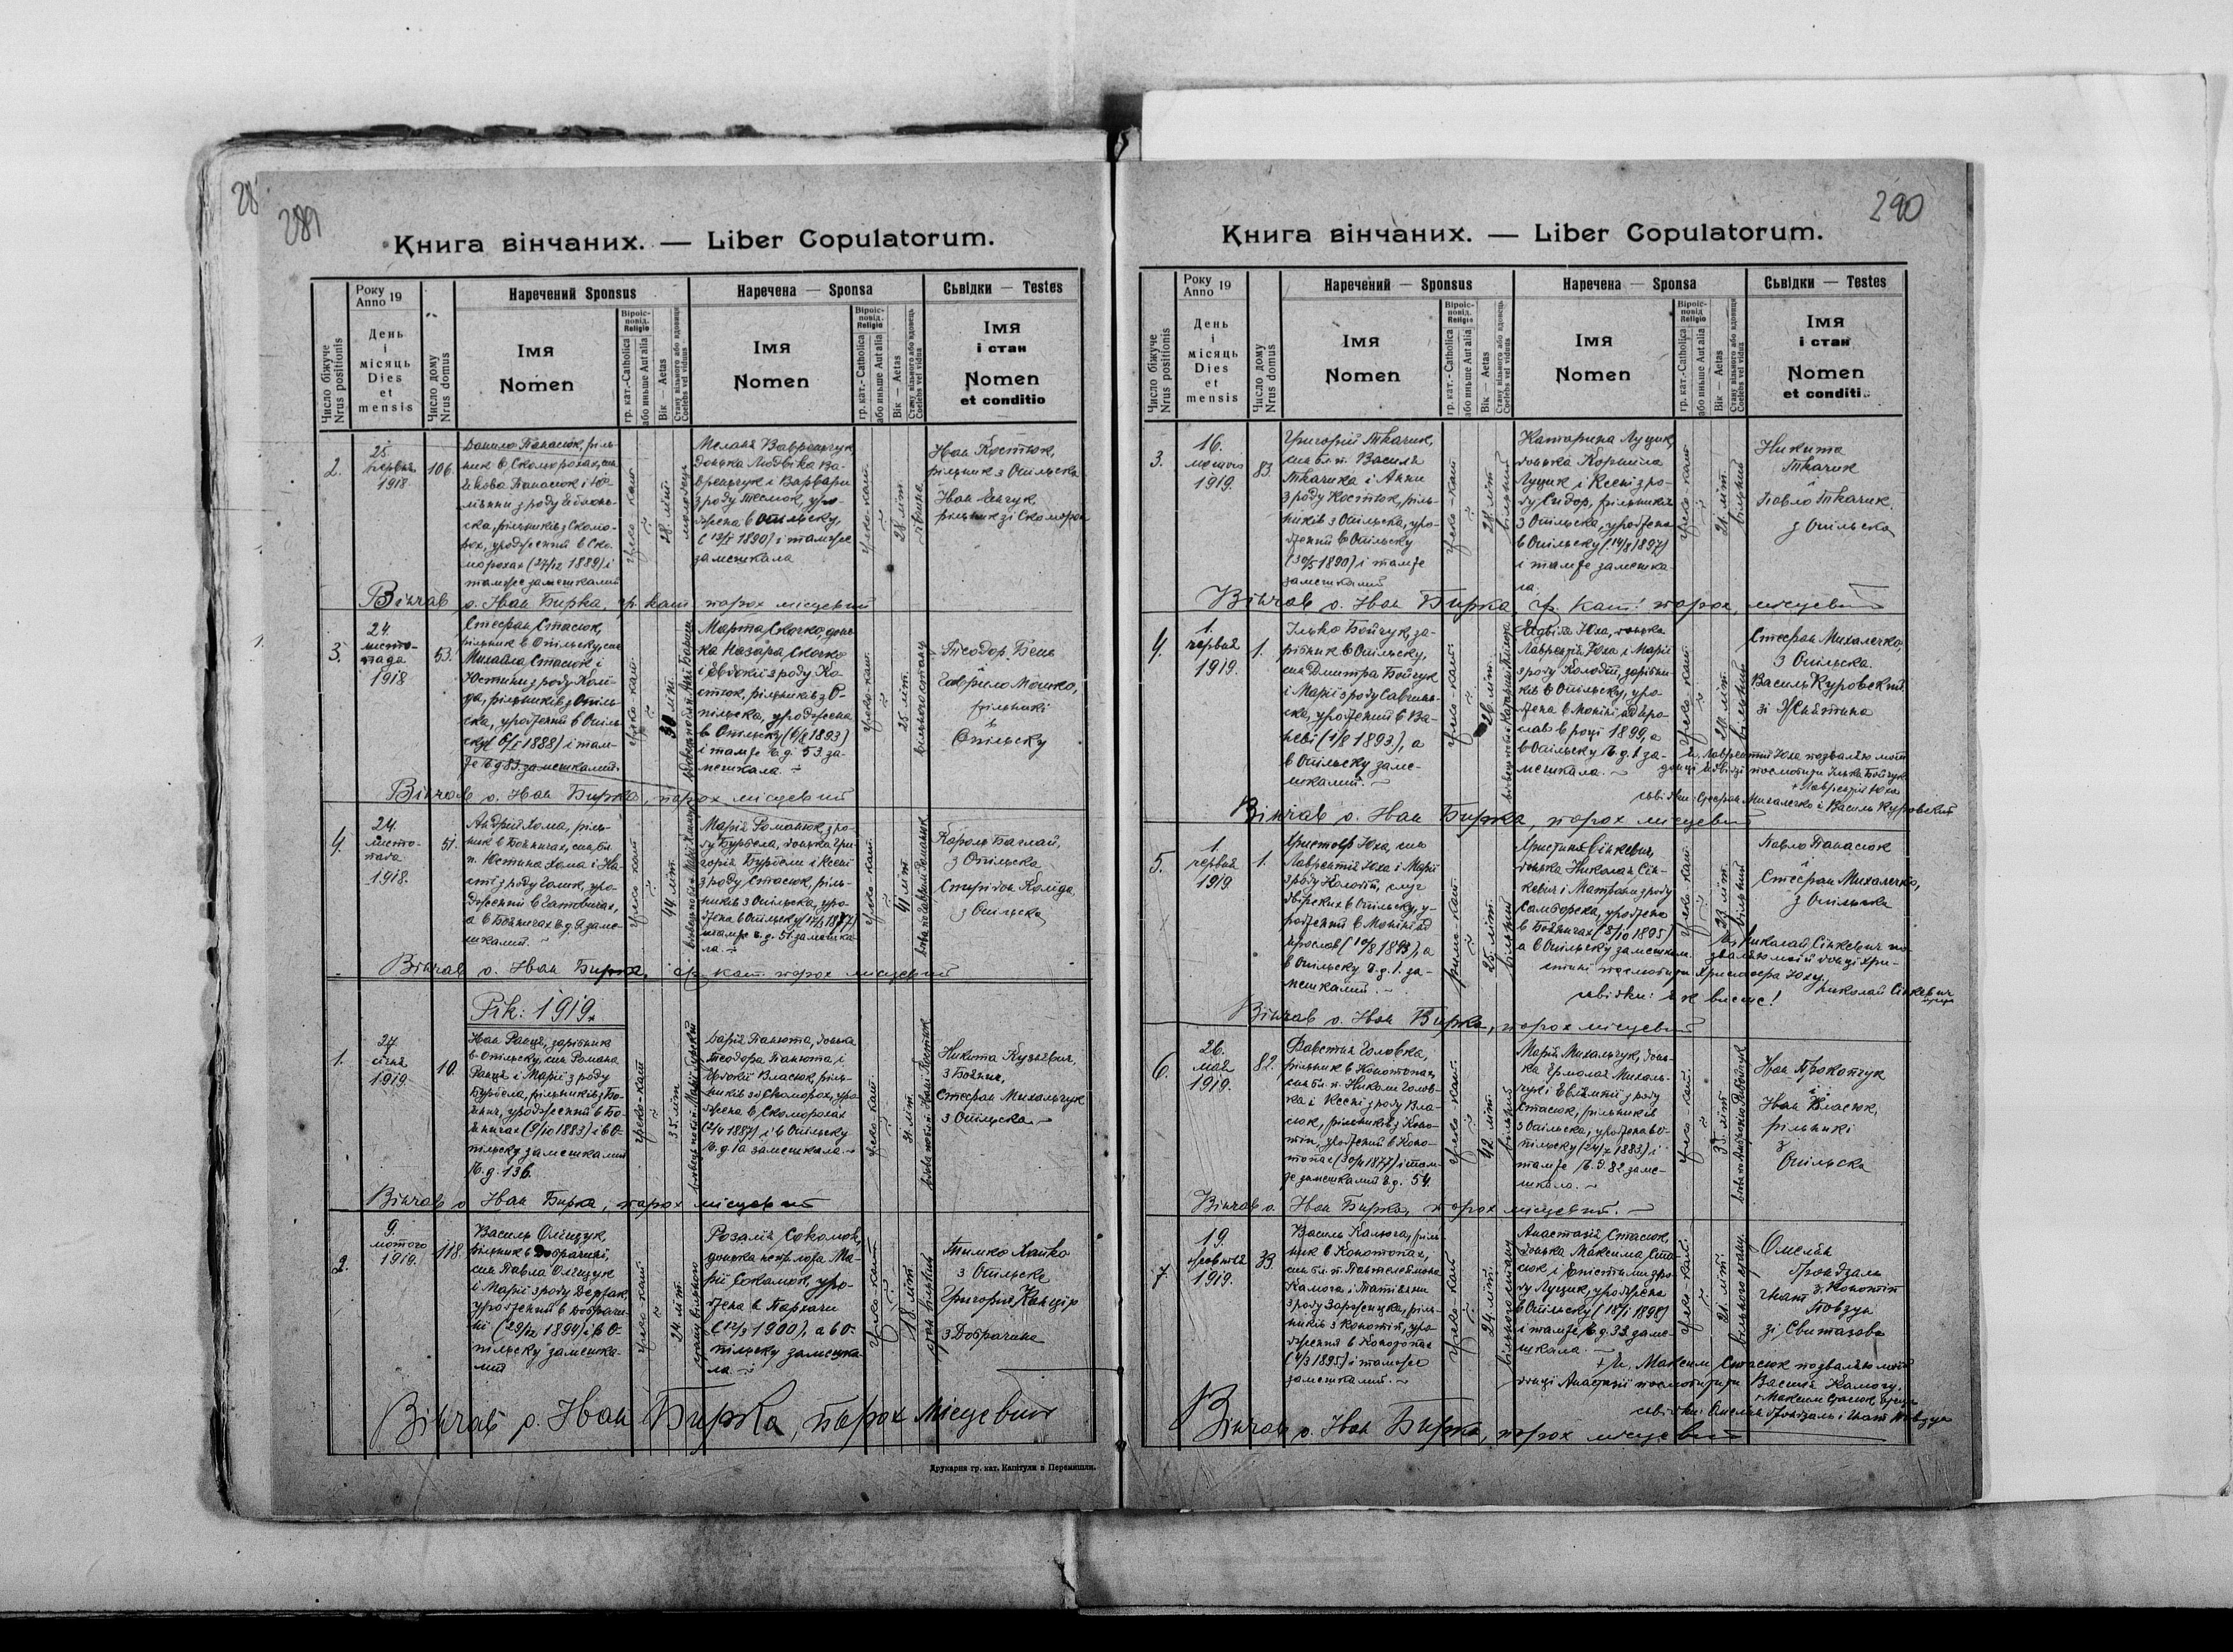 289
Книга вінчаних. — Liber Copulatorum.
Число біжуче
Nrus positionis
Року
Anno 19
День
і
місяць
Dies
et
mensis
Число дому
Nrus domus
Наречений Sponsus
Імя
Nomen
Віроіс-
повід.
Religio
гр. кат.-Catholica
або инынше Aut alia
Вік — Aetas
Стану вільного або вдовець
Coelebs vel viduus
Наречена — Sponsa
Імя
Nomen
Віроіс-
повід.
Religio
гр. кат.-Catholica
Вік — Aetas
Сьвідки — Testes
Імя
і стан
Nomen
et conditio
2.
25.
червня
1918
106.
Данило Панасюк,ріль-
ник в Скоморохах, син
Якова Панасюк і
з роду
ска, рільників з Скомо-
рох, уроджений в Ско-
морохах (27/12 1889) і
тамже замешкалий
греко-кат.
28 літ
молодець
Меланія Вавренчук
донька Людвіка Ва-
вренчук і Варвари
з роду Тесмюк, уро-
джена в Опільську,
(13/I 1890) і тамже
замешкала
греко-кат.
28 літ.
дівиця
Иван Костюк,
рільник з Опільска
Иван
рільник зі Скоморох
Вінчав о. Иван Бирка, гр. кат. парох місцевий
3.
24.
листо-
пада
1918
53.
Стефан Стасюк,
рільник в Опільську, син
Михайла Стасюк і
Юстини з роду Колі-
да, рільників з Опіль-
ска, уроджений в Опіль-
ску (6/I 1888) і там-
же ч. д 83. замешкалий.
греко-кат.
30 літ.
Марта Скочко, донь-
ка Назара Скочко
і Евдокії з роду Ко-
стюк, рільників з О-
пільска, уроджена
в Опільску (6/8 1893)
і тамже ч. д. 53 за-
мешкала.
греко-кат.
25 літ.
вільного стану
Теодор Бень
і
Гаврило Мошко,
рільники
в
Опільску
Вінчав о. Иван Бирка, парох місцевий
4.
24.
листо-
пада
1918.
51.
Андрій Хома, ріль-
ник в Бояничах, син бл.
п. Юстина Хома і На-
сті з роду Голик, уро-
джений в
а в Бояничах ч. д. 9. заме-
шкалий.
греко-кат.
44 літ.
Марія Романюк, з ро-
ду Бурбела, донька Гри-
горія Бурбели і Ксені
з роду Стасюк, ріль-
ників з Опільска, уро-
джена в Опільску
тамже ч. д. 51. замешка-
ла.
греко-кат.
41 літ
Кароль Баглай,
з Опільска
Спиридон Коліда
з Опільска
Вінчав о. Иван Бирка, гр. кат. парох місцевий
Рік: 1919.
1.
27
січня
1919.
10.
Иван Раиця, зарібник
в Опільску, син Романа
Раиця і Марії з роду
Бурбела, рільників з Бо-
янич, уроджений в Бо-
яничах (9/10 1883) і в О-
пільску замешкалий
ч. д. 136.
греко-кат
35 літ
Дарія Панюта, донька
Теодора Панюта, і
Евдокії Власюк, ріль-
ників зі Скоморох, уро-
джена в Скоморохах
(2/4 1887) і в Опільску
ч. д 10 замешкала.
греко-кат.
31 літ
Никита Кузьневич,
з Боянич,
Стефан Михальчук
з Опільска
Вінчав о. Иван Бирка, парох місцевий
2.
9.
лютого
1919.
118.
Василь Оліщук
рільник в Добрачині,
син Павла Оліщук
і Марії з роду Дедзак,
уроджений в Добрачи-
ні (29/12 1894) і в О-
пільску замешка-
лий
греко-кат
24 літ
стану вільного
Розалія Соколюк,
донька Ма-
рії Соколюк, уро-
джена в Пархачи
(12/3 1900), а в О-
пільску замешка-
ла.
греко-кат.
18 літ
стан вільний
Тимко Хапко
з Опільска
Григорий Канцір
з Добрачина
Вінчав о. Иван Бирка, парох місцевий
Друкарня гр. кат. Капітули в Перемишли.
290
Книга вінчаних. — Liber Copulatorum.
Число біжуче
Nrus positionis
Року
Anno 19
День
і
місяць
Dies
et
mensis
Число дому
Nrus domus
Наречений — Sponsus
Імя
Nomen
Віроіс-
повід.
Religio
гр. кат.-Catholica
Вік — Aetas
Наречена — Sponsa
Імя
Nomen
Віроіс-
повід
Religio
гр. кат.-Catholica
Вік — Aetas
Сьвідки — Testes
Імя
і стан
Nomen
et conditi
3.
16.
лютого
1919.
83.
Григорій Ткачик,
син бл. п. Василя
Ткачика і Анни
з роду Костюк, ріль-
ників з Опільска, уро-
джений в Опільску
(30/5 1890) і тамже
замешкалий
греко-кат
28 літ.
вільний
Катарина Луцик,
донька Корнила
Луцик і Ксені з ро-
ду Сидор, рільників
з Опільска, уроджена
в Опільску (14/8 1897)
і тамже замешка-
ла.
греко-кат
21 літ.
вільний
Никита
Ткачик
і
Павло Ткачик.
з Опільска
Вінчав о. Иван Бирка гр. кат. парох, місцевий
4.
1.
червня
1919.
1.
Ілько Бойчук, за-
рібник в Опільску,
син Дмитра Бойчук
і Марії з роду Савчинь-
ска, уроджений в Ва-
неві (1/8 1893), а
в Опільску заме-
шкалий.
греко-кат.
26 літ.
Ядвіга Юха, донька
Лаврентія Юха, і Марії
з роду Колодій, зарібни-
ків в Опільску, уро-
джена в
слав в році 1899, а
в Опільску ч. д. 1 за-
мешкала.
греко-кат.
20 літ.
вільний
Стефан Михалечко,
з Опільска.
Василь Куровский
зі
Лаврентий Юха позваляю моїй
донці Ядвізі пошлюбити Ілька Бойчук
+ Лаврентій Юха
сьвідки: Стефан Михалечко і Василь Куровский
Вінчав о. Иван Бирка, парох місцевий
5.
1.
червня
1919
1.
Христофор Юха, син
Лаврентія Юха і Марії
з роду Колодій, слуг
двірских в Опільску, у-
роджений в
ярослав (10/8 1893), а
в Опільску ч. д. 1. за-
мешкалий.
римо-кат.
25 літ.
вільний
Христина Сінкевич,
донька Николая Сін-
кевич і Матрони з роду
Самборска, уроджена
в Бояничах (8/10 1895)
а в Опільску замешкал.
греко-кат.
23 літ.
вільний
Павло Панасюк
і
Стефан Михалечко,
з Опільска
Я, Николай Сінкевич по-
зваляю моїй донці Хри-
стині пошлюбити Христофора Юху.
Николай Сінкевич
сьвідки: як висше!
Вінчав о. Иван Бирка, парох місцевий
6.
26.
мая
1919.
82.
Фавстин Головка,
рільник в Конотопах,
син бл. п. Николи Голов-
ка і Ксені з роду Вла-
сюк, рільників з Коно-
тіп, уроджений в Коно-
топах (30/4 1877) і там-
же замешкалий ч. д. 54.
греко-кат.
42 літ
вільний
Марія Михальчук, донь-
ка Ермолая Михаль-
чук і Евфимії з роду
Стасюк, рільників
з Опільска, уроджена в О-
пільску (24/7 1883) і
тамже ч. д. 82 заме-
шкала.
греко-кат.
35 літ
Иван Прокопчук
і
Иван Власюк,
рільники
з
Опільска
Вінчав о. Иван Бирка, парох місцевий.
7.
19.
1919.
33.
Василь Камюга, ріль-
ник в Конотопах,
син бл. п. Пантелеймона
Камюга і Татіянни
з роду ріль-
ників з Конотіп, уро-
джений в Конотопах
(4/3 1895) і тамже
замешкалий.
греко-кат
24 літ.
вільного стану
Анастазія Стасюк,
донька Максима Ста-
сюк і Епістими з ро-
ду Луцик, уроджена
в Опільску (18/I 1898)
і тамже ч. д. 33 заме-
шкала.
греко-кат.
21 літ.
вільного стану.
Омелян
Грондзаль
з Конотіп
Игнат
Повзун
зі Свитазова
+ Я, Максим Стасюк позваляю моїй
донці Анастазії пошлюбити Василя Камюгу.
+ Максим Стасюк
сьвідки: Омелян Грондзаль і Игнат Повзун
Вінчав о. Иван Бирка, парох місцевий